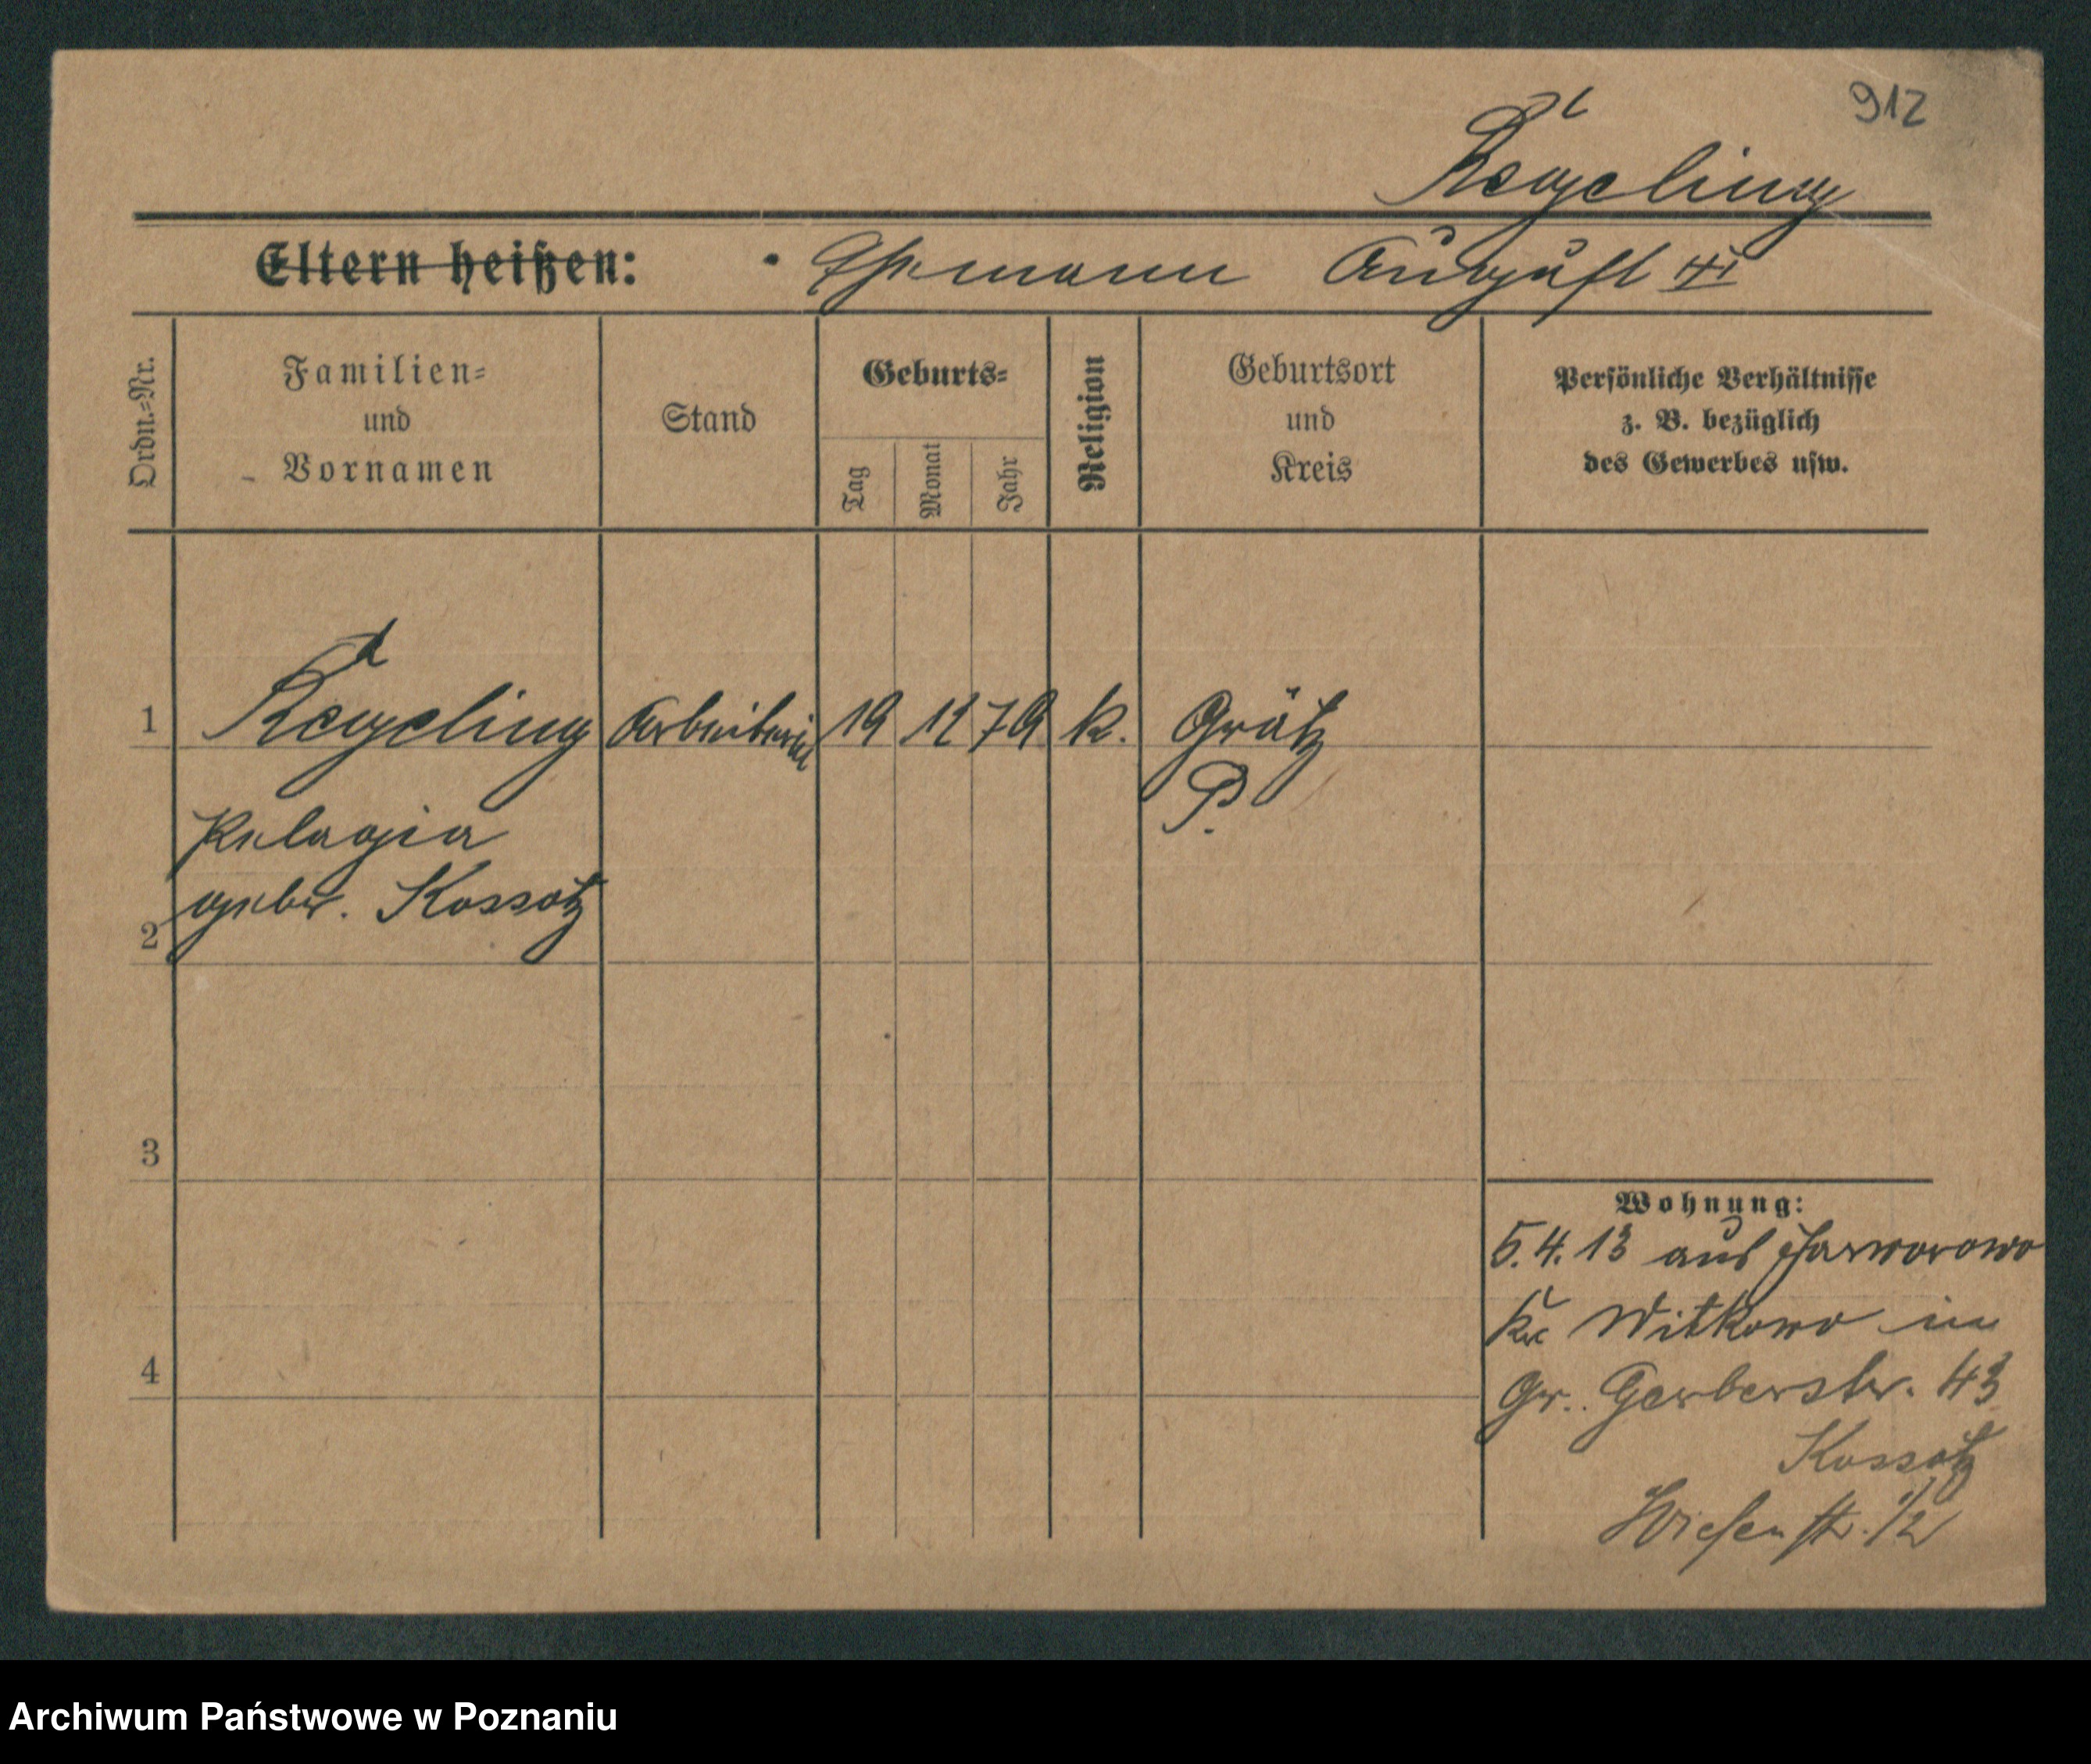 912
Regeling
Eltern heißen: Ehemann August III
Ordn.-Nr.
Familien-
und
Vornamen
Stand
Geburts-
Tag
Monat
Jahr
Religion
Geburtsort
und
Kreis
Persönliche Verhältnisse
z. B. bezüglich
des Gewerbes usw.
1 Regeling Arbeiterin 19 12 79 k. Grätz
P.
Pelagia
gebor. Kossatz
2
3
4
Wohnung:
5.4.13 aus
Kr Witkowo in
Gr. Gerberstr. 43
Kossatz
Wiesenstr. 1/2
Archiwum Państwowe w Poznaniu